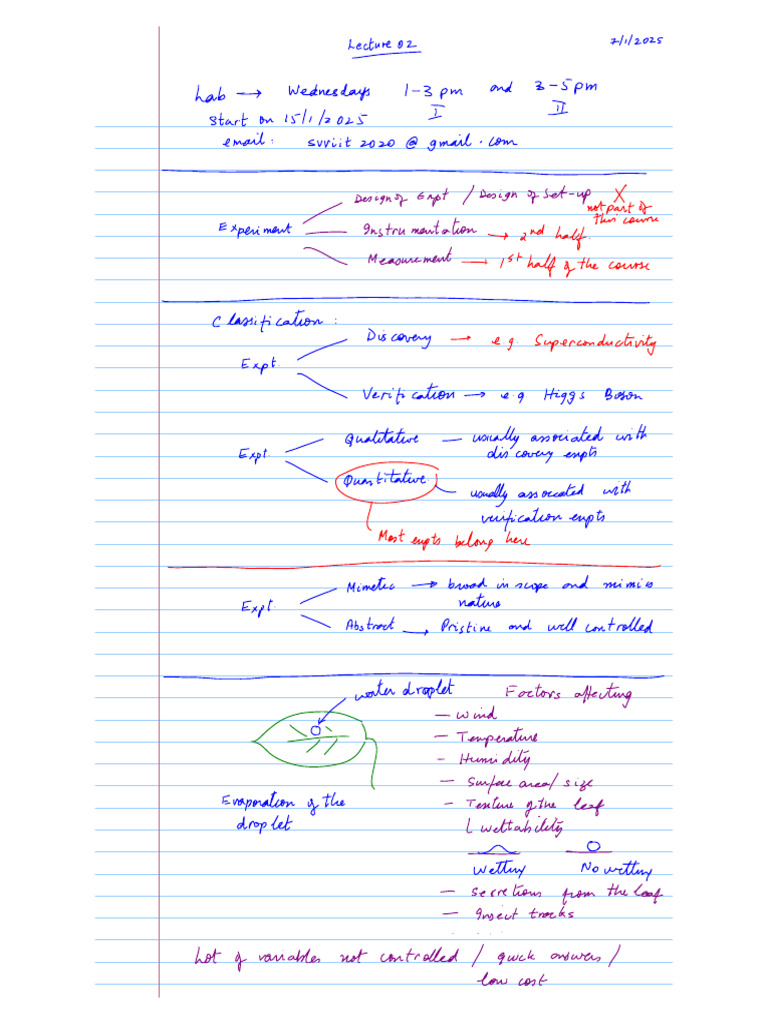 Lecture 02
7/1/2025
Lab → Wednesdays 1-3 pm and 3-5 pm
I II
Start on 15/1/2025
email: svviit2020@gmail.com
Design of Expt / Design of Set-up X
not part of
this course
Experiment
Instrumentation → 2nd half.
Measurement → 1st half of the course
Classification:
Discovery → e.g. Superconductivity
Expt.
Verification → e.g. Higgs Boson
Qualitative — usually associated with
discovery expts
Expt.
Quantitative — usually associated with
verification expts
Most expts belong here
Mimetic → broad in scope and mimics
nature
Expt.
Abstract → Pristine and well controlled
water droplet
Factors affecting
— Wind
— Temperature
— Humidity
— Surface area/size
Evaporation of the
droplet
— Texture of the leaf
( wettability
Wetting No wetting
— Secretions from the leaf
— Insect tracks
Lot of variables not controlled / quick answers /
low cost